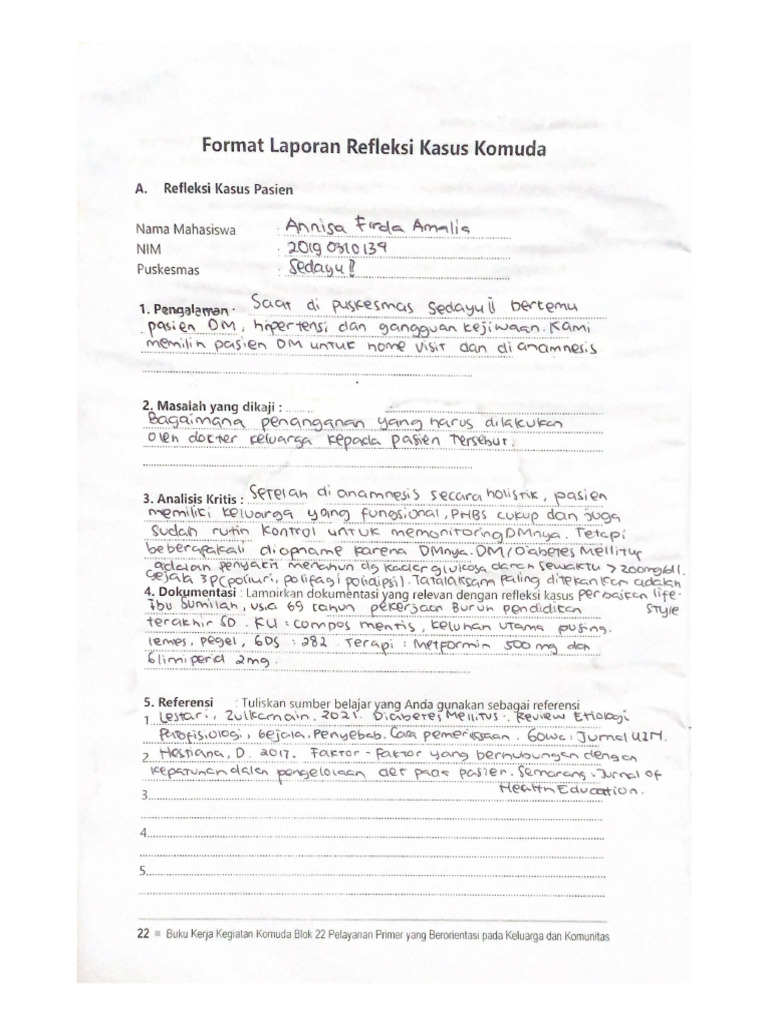 Format Laporan Refleksi Kasus Komuda
A. Refleksi Kasus Pasien
Nama Mahasiswa : Annisa Firda Amalia
NIM : 20190310139
Puskesmas : Sedayu
1. Pengalaman : Saat di puskesmas Sedayu II bertemu
pasien DM, hipertensi dan gangguan kejiwaan. Kami
memilih pasien DM untuk home visit dan di anamnesis
2. Masalah yang dikaji :
Bagaimana penanganan yang harus dilakukan
oleh dokter keluarga kepada pasien tersebut.
3. Analisis Kritis : Setelah di anamnesis secara holistik, pasien
memiliki keluarga yang fungsional, PHBS cukup dan juga
sudah rutin kontrol untuk memonitoring DMnya. Tetapi
beberapakali diopname karena DMnya. DM/Diabetes Mellitus
adalah penyakit menahun dg kadar glukosa darah sewaktu > 200mg/dl.
Gejala 3P (poliuri, polifagi polidipsi). Tatalaksana paling ditekankan adalah
perbaikan life-
style
4. Dokumentasi : Lamnirkan dokumentasi yang relevan dengan refleksi kasus
Ibu Sumilah, usia 69 tahun pekerjaan Buruh pendidikan
terakhir SD. KU : compos mentis, keluhan utama pusing.
lemes, pegel, GDS : 282. Terapi : Metformin 500 mg dan
Glimiperid 2mg.
5. Referensi : Tuliskan sumber belajar yang Anda gunakan sebagai referensi
1. Lestari, Zulkarnain. 2021. Diabetes Mellitus : Review Etiologi
Patofisiologi, Gejala. Penyebab. Cara pemeriksaan. Gowa : Jurnal UIN.
2. Hestiana, D. 2017. Faktor-Faktor yang berhubungan dengan
kepatuhan dalam pengelolaan diet pada pasien. Semarang : Jurnal of
Health Education.
3.
4.
5.
22 Buku Kerja Kegiatan Komuda Blok 22 Pelayanan Primer yang Berorientasi pada Keluarga dan Komunitas